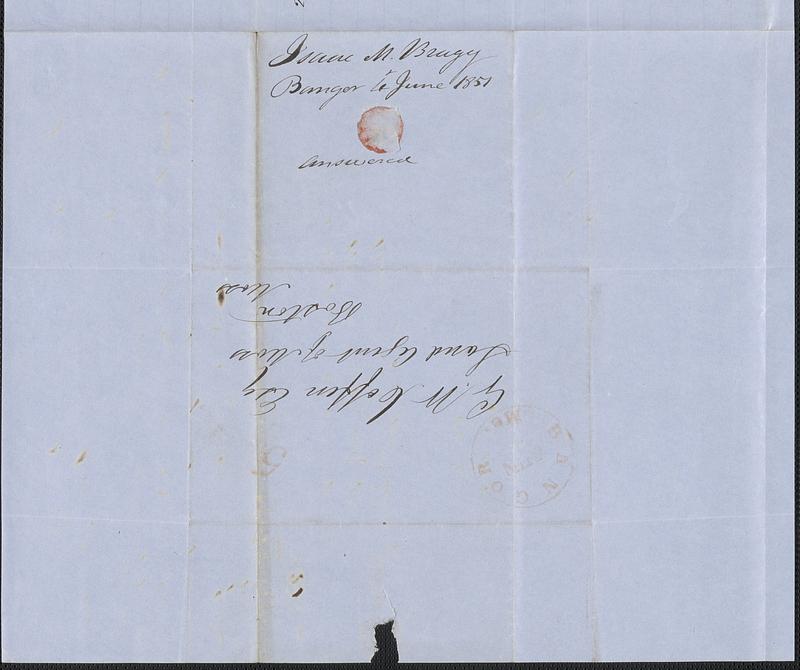 Isaac M. Bragg
Bangor 4 June 1851
answered
G. W. Coffin Esq
Land Agent of Mass
Boston
Mass
BANGOR
Me.
5